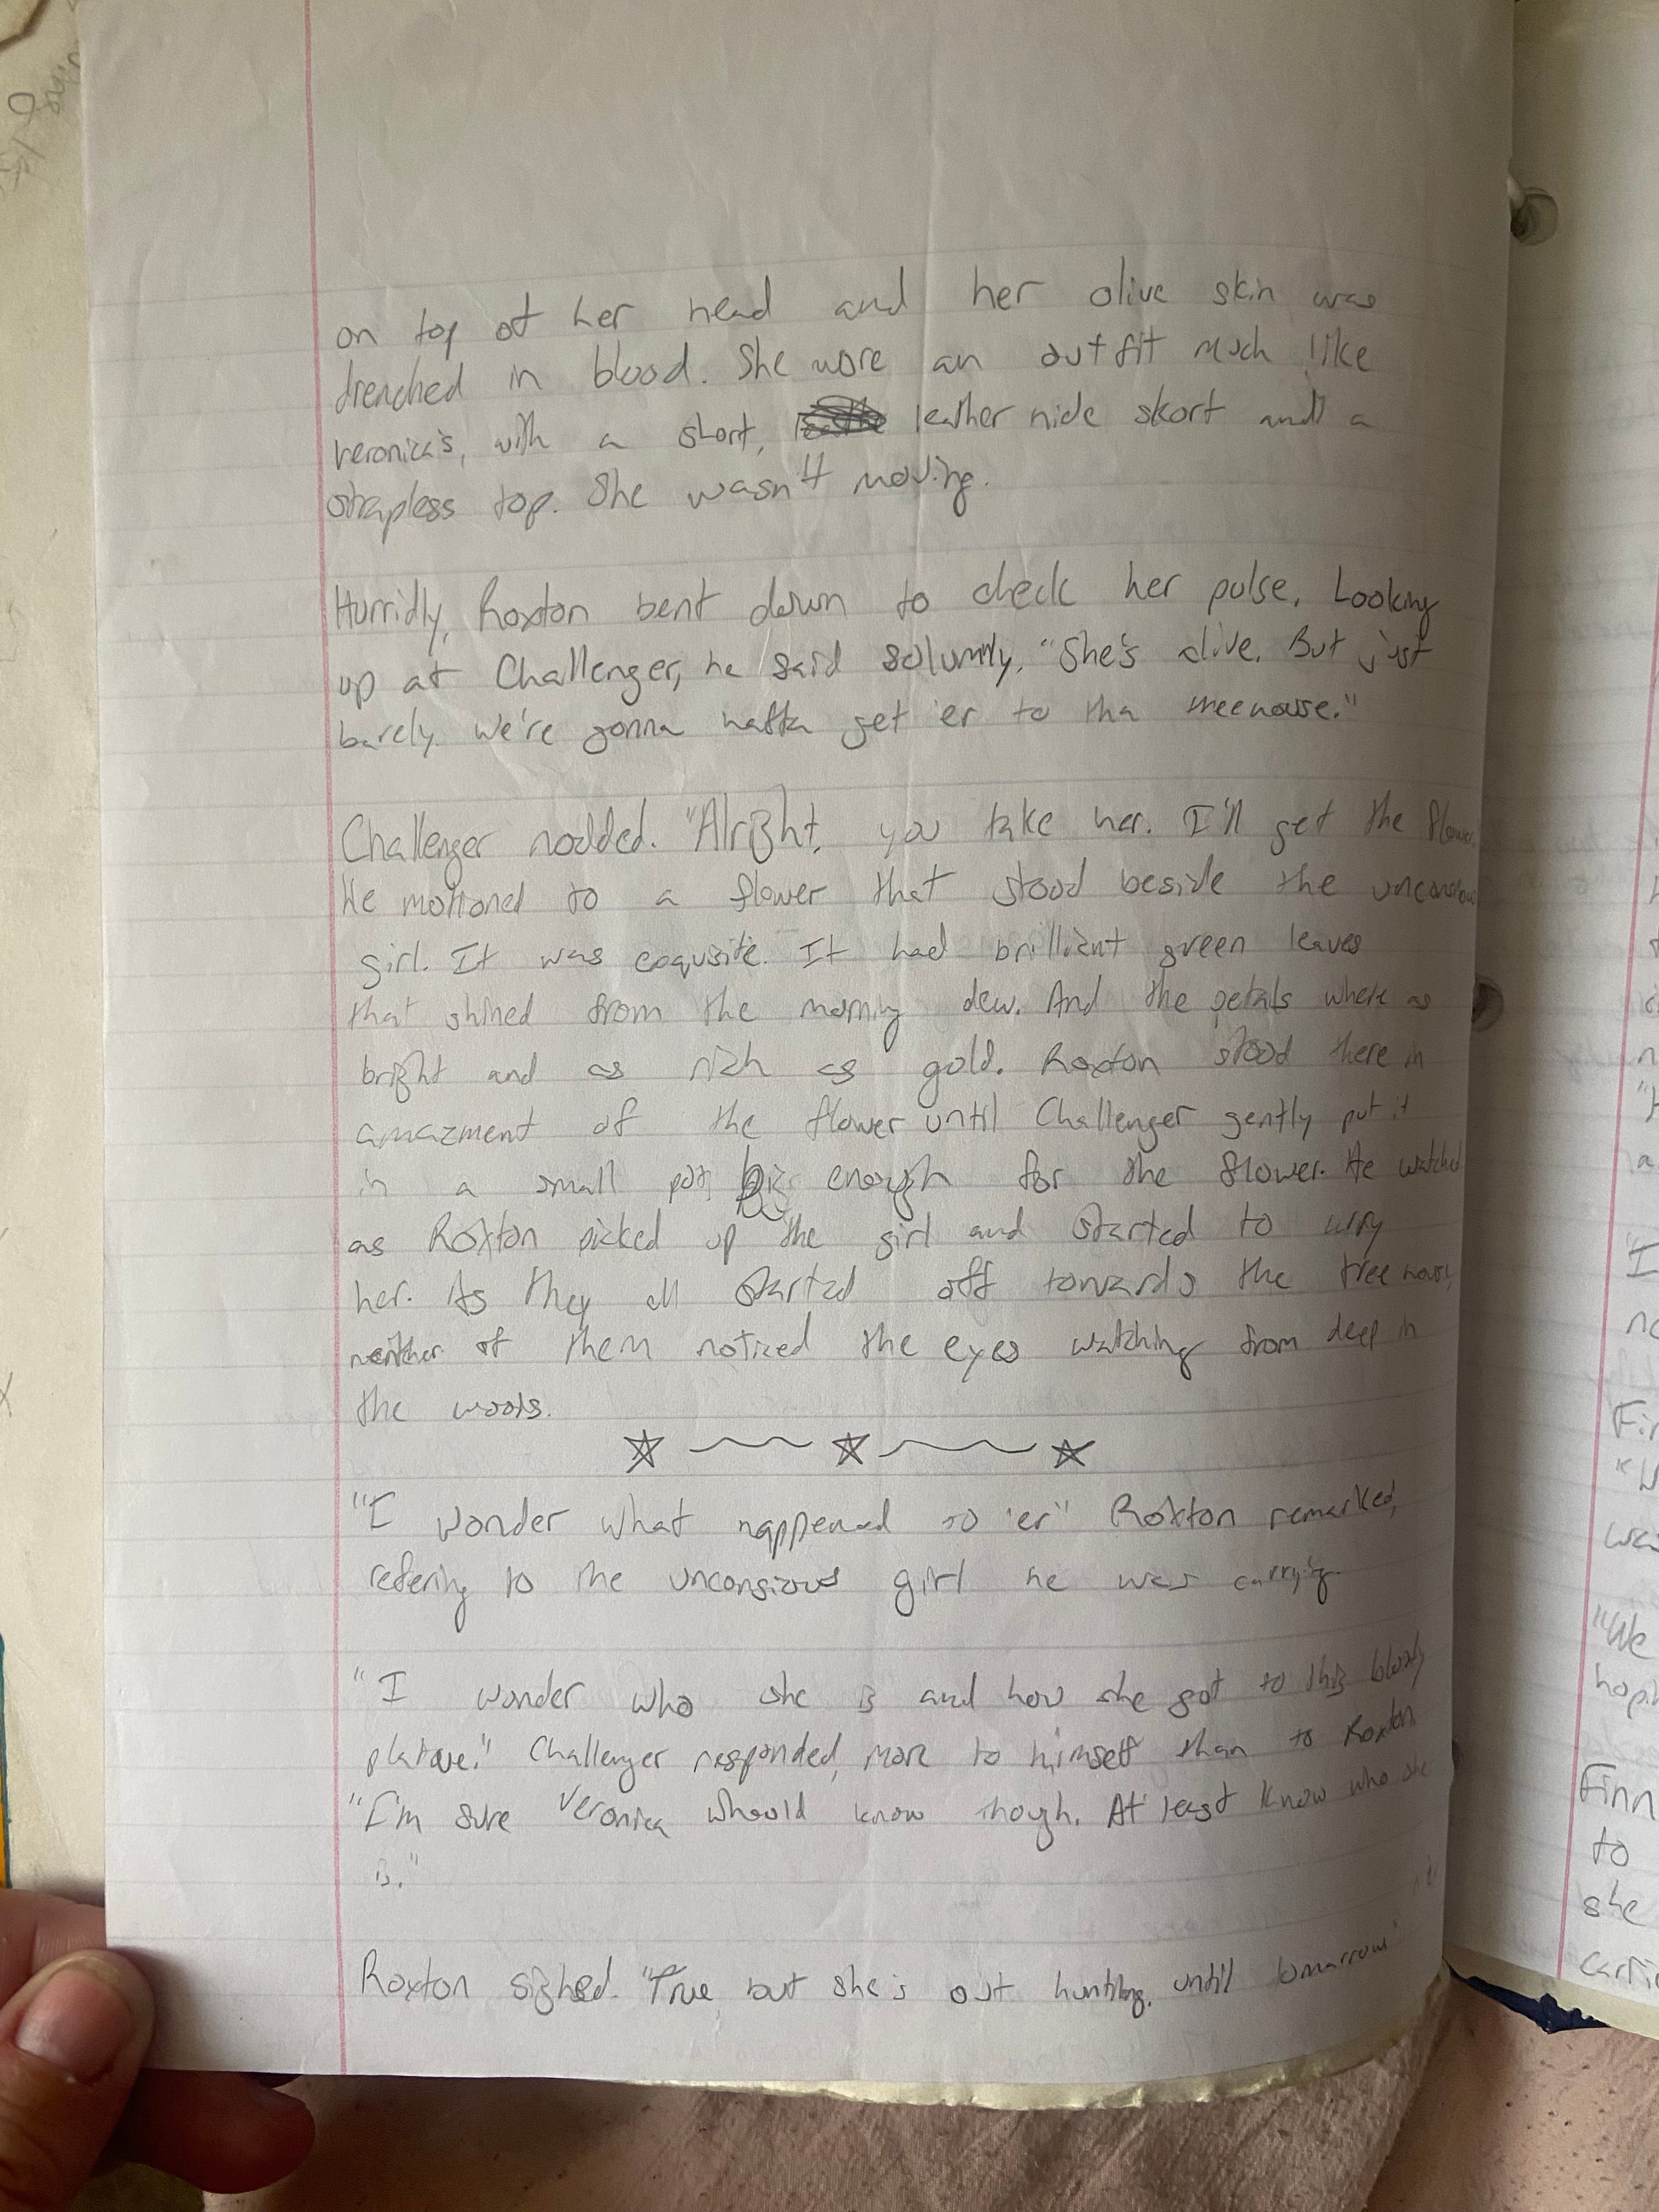 on top of her head and her olive skin was
drenched in blood. She wore an outfit much like
veronica's, with a short, leather hide skort and a
strapless top. She wasn't moving.
Hurridly, Roxton bent down to check her pulse. Looking
up at Challenger, he said solumnly, "She's alive. But just
barely. We're gonna hafta get 'er to tha treehouse."
Challenger nodded. "Alright, you take her. I'll get the flower.
He motioned to a flower that stood beside the
girl. It was exquisite. It had brilliant green leaves
that shined from the morning dew. And the petals where as
bright and as rich as gold. Roxton stood there in
amazment of the flower until Challenger gently put it
in a small pot, big enough for the flower. He watched
as Roxton picked up the girl and started to carry
her. As they all started off towards the treehouse,
neither of them noticed the eyes watching from deep in
the woods.
"I wonder what happened to 'er" Roxton remarked,
refering to the unconsious girl he was carrying.
"I wonder who she is and how she got to this bloody
platoue." Challenger responded, more to himself than to Roxton
"I'm sure Veronica whould know though. At least know who she
is."
Roxton sighed. "True, but she's out hunting, until tomarrow"
"We
Finn
to
she